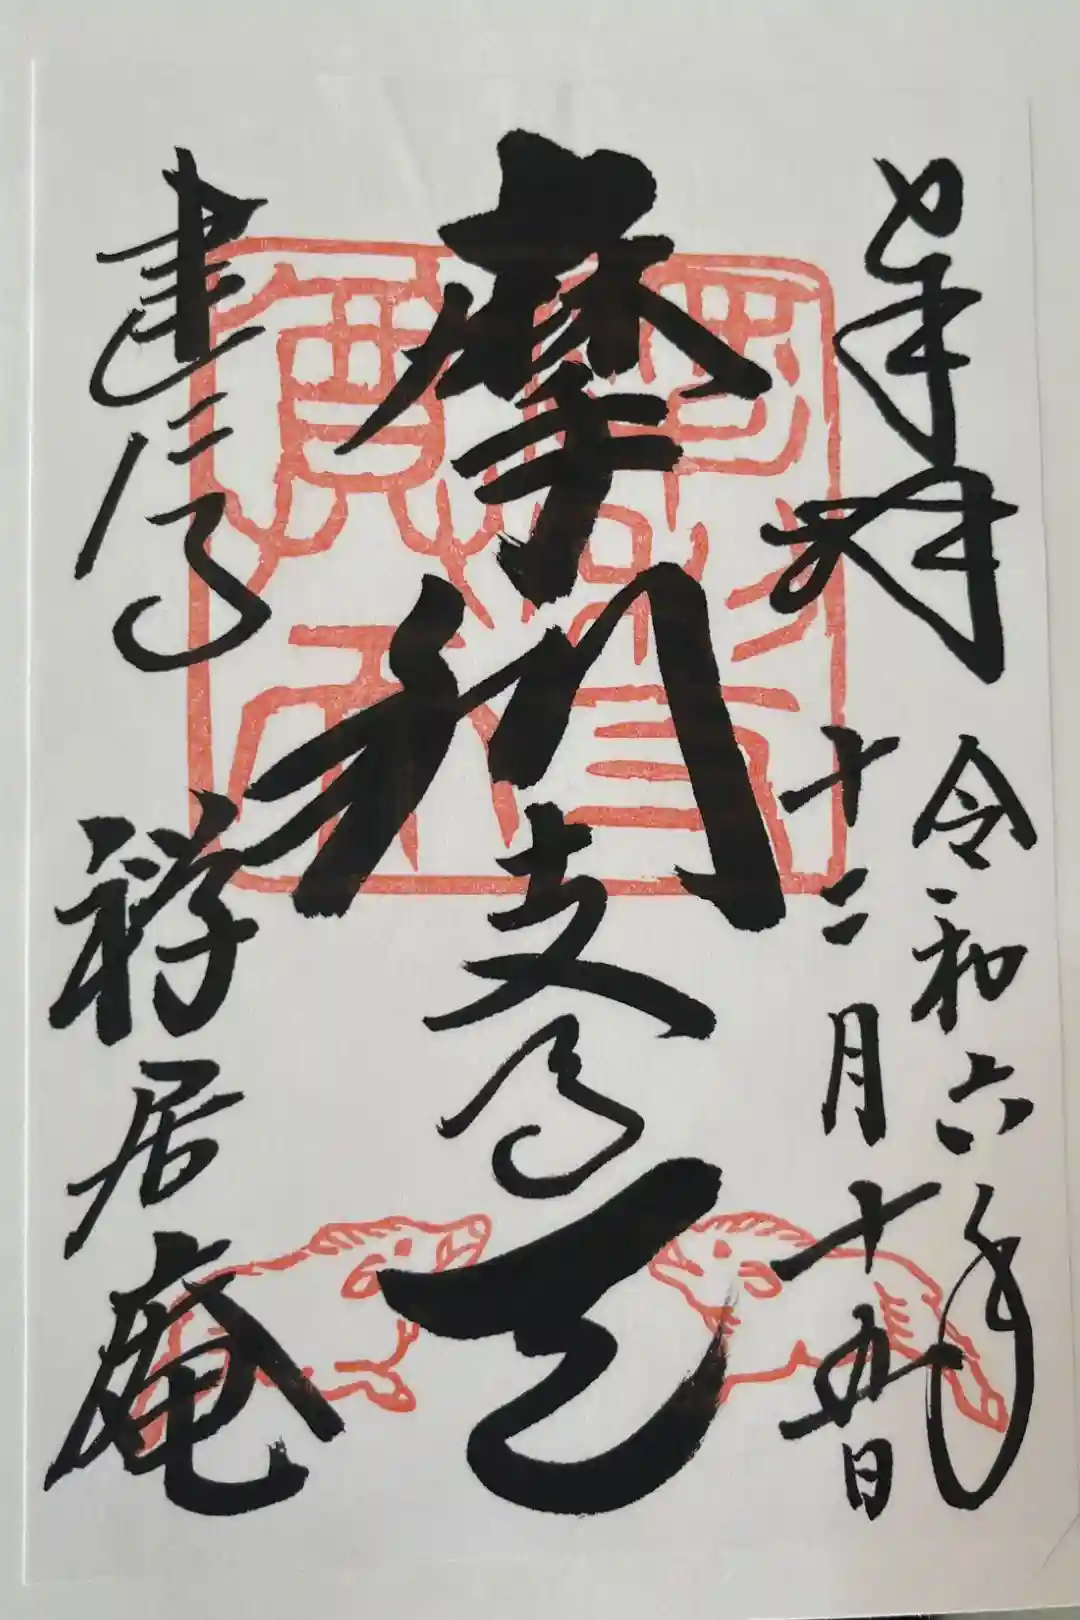 奉拝
令和六年
十二月十五日
摩利支尊天
建仁寺
禅居庵